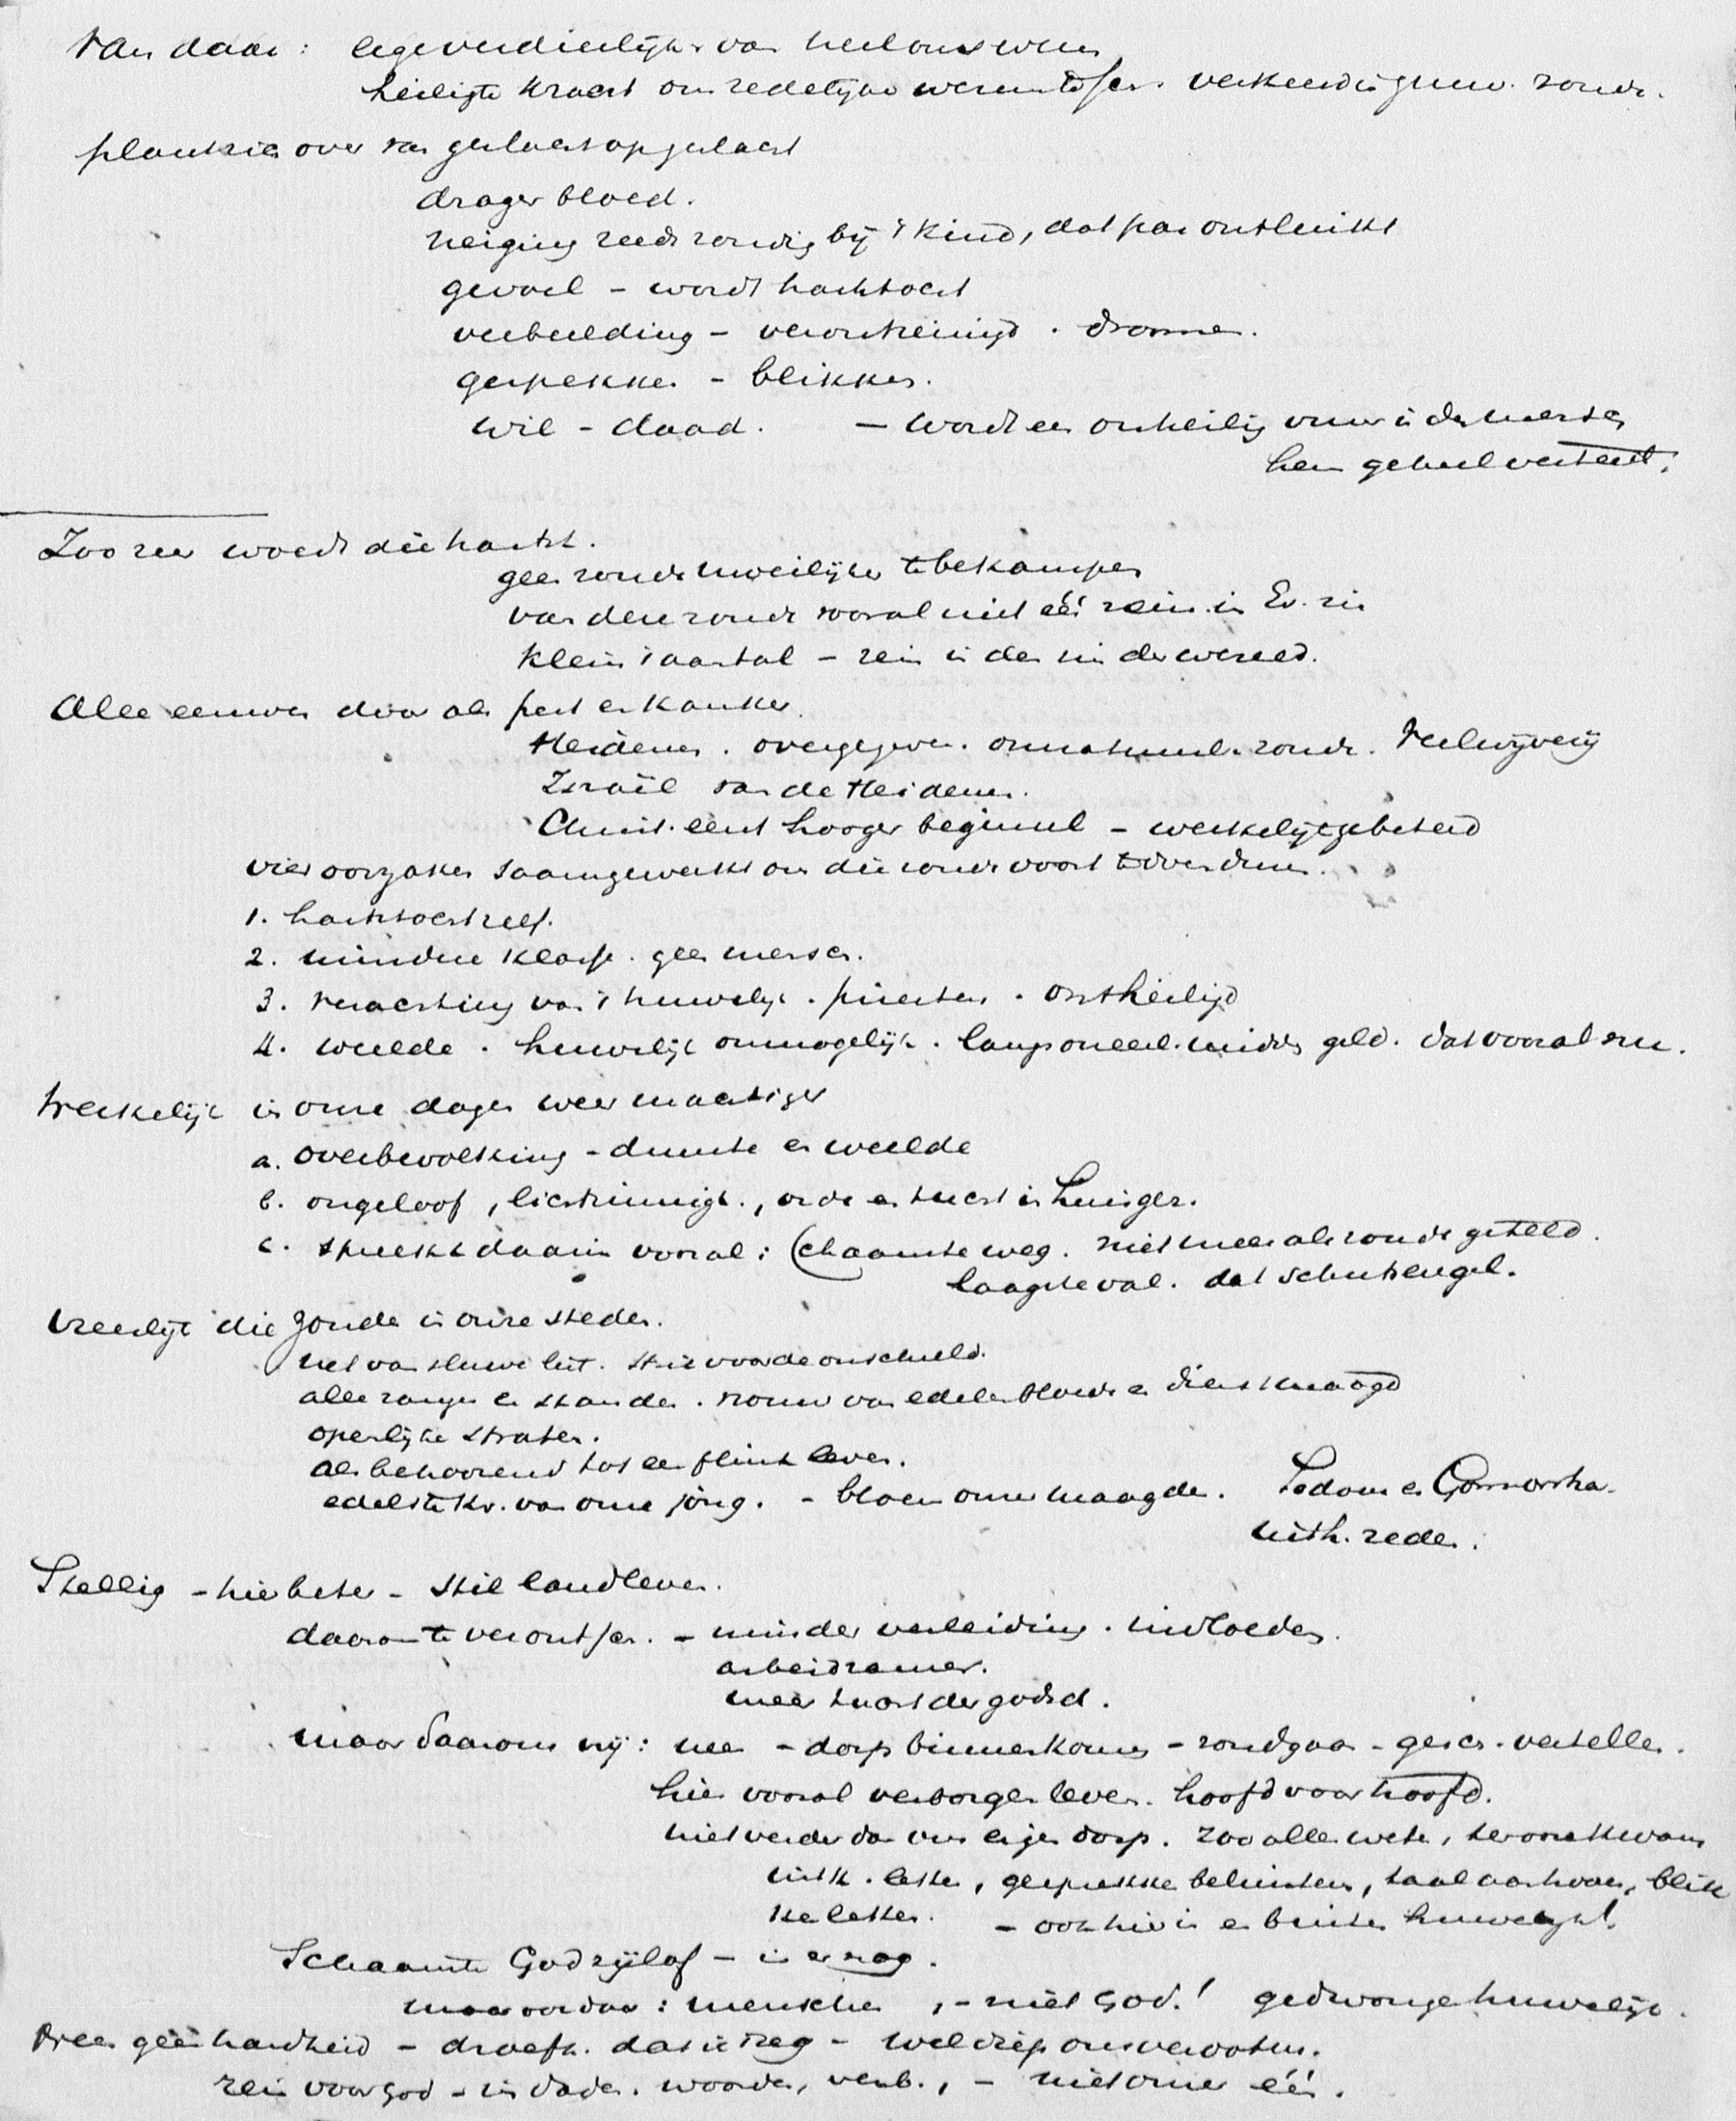 Van daar: 
heiligste kracht onzedelijke verkeerd zonde.
plantzich over van geslacht op geslacht
drager bloed.
neiging reeds zondig bij 't kind, dat pas ontluikt
gevoel - wordt hartstocht
verbeelding - verontreinigd. droomen.
gesprekken - blikken.
wil - daad. - wordt een onheilig vuur in den mensch
hem geheel verteert.
Zoo zeer woedt die hartst.
geen zonde moeilijker te bekampen
van deze zonde vooral niet één rein. in Ev. zin
klein 't aantal - rein in den zin der wereld.
Alle eeuwen door als pest en kanker.
Heidenen. overgegeven. onnatuurl. zonde. Veelwijverij
Israël van de Heidenen.
Christ. eerst hooger beginsel - werkelijk gebeterd
vier oorzaken saamgewerkt om die zonde voort te doen
1. hartstocht zelf.
2. mindere klasse. geen mensch.
3. verachting van 't huwelijk. priesters. ontheiligd
4. weelde. huwelijk onmogelijk. middel geld. dat vooral nu.
Werkelijk in onze dagen weer machtiger
a. overbevolking - duurte en weelde
b. ongeloof, lichtzinnigh., orde en tucht in huisgez.
c. spreekt daarin vooral: Schaamte weg. niet meer als zonde geteld.
laagste val. dat schutsengel.
Vreeslijk die zonde in onze steden.
net van sluwe list. strik voor de onschuld.
alle rangen en standen. vrouw van edelen bloede en dienstmaagd
openlijke straten.
als behoorend tot een flink leven.
edelste kr. van onze jong. - bloem onzer maagden. Sodom en Gomorrha.
uith. zeden.
Stellig - hier beter - stil landleven.
daarom te verontsch. - minder verleiding. invloeden.
arbeidzamer.
meer tucht der godsd.
maar daarom vrij: nee - dorp binnenkomen - rondgaan - gesch. vertellen.
hier vooral verborgen leven. hoofd voor hoofd.
niet verder dan ons eigen dorp. zoo allen weten,
uitk. letten, gesprekken beluisteren, taal aanhooren, blik
ken letten. - ook hier in en buiten huwelijk!
Schaamte God zij lof - is er nog.
maar voor: menschen, - niet God! gedwongen huwelijk.
Neen geen hardheid - droefh. dat ik zeg - wel diep ons verootm.
rein voor God - in daden. woorden, verb., - niet onzer één.